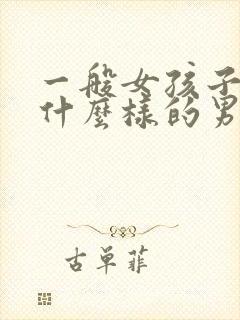 一般女孩子
什麼樣的男
古單菲